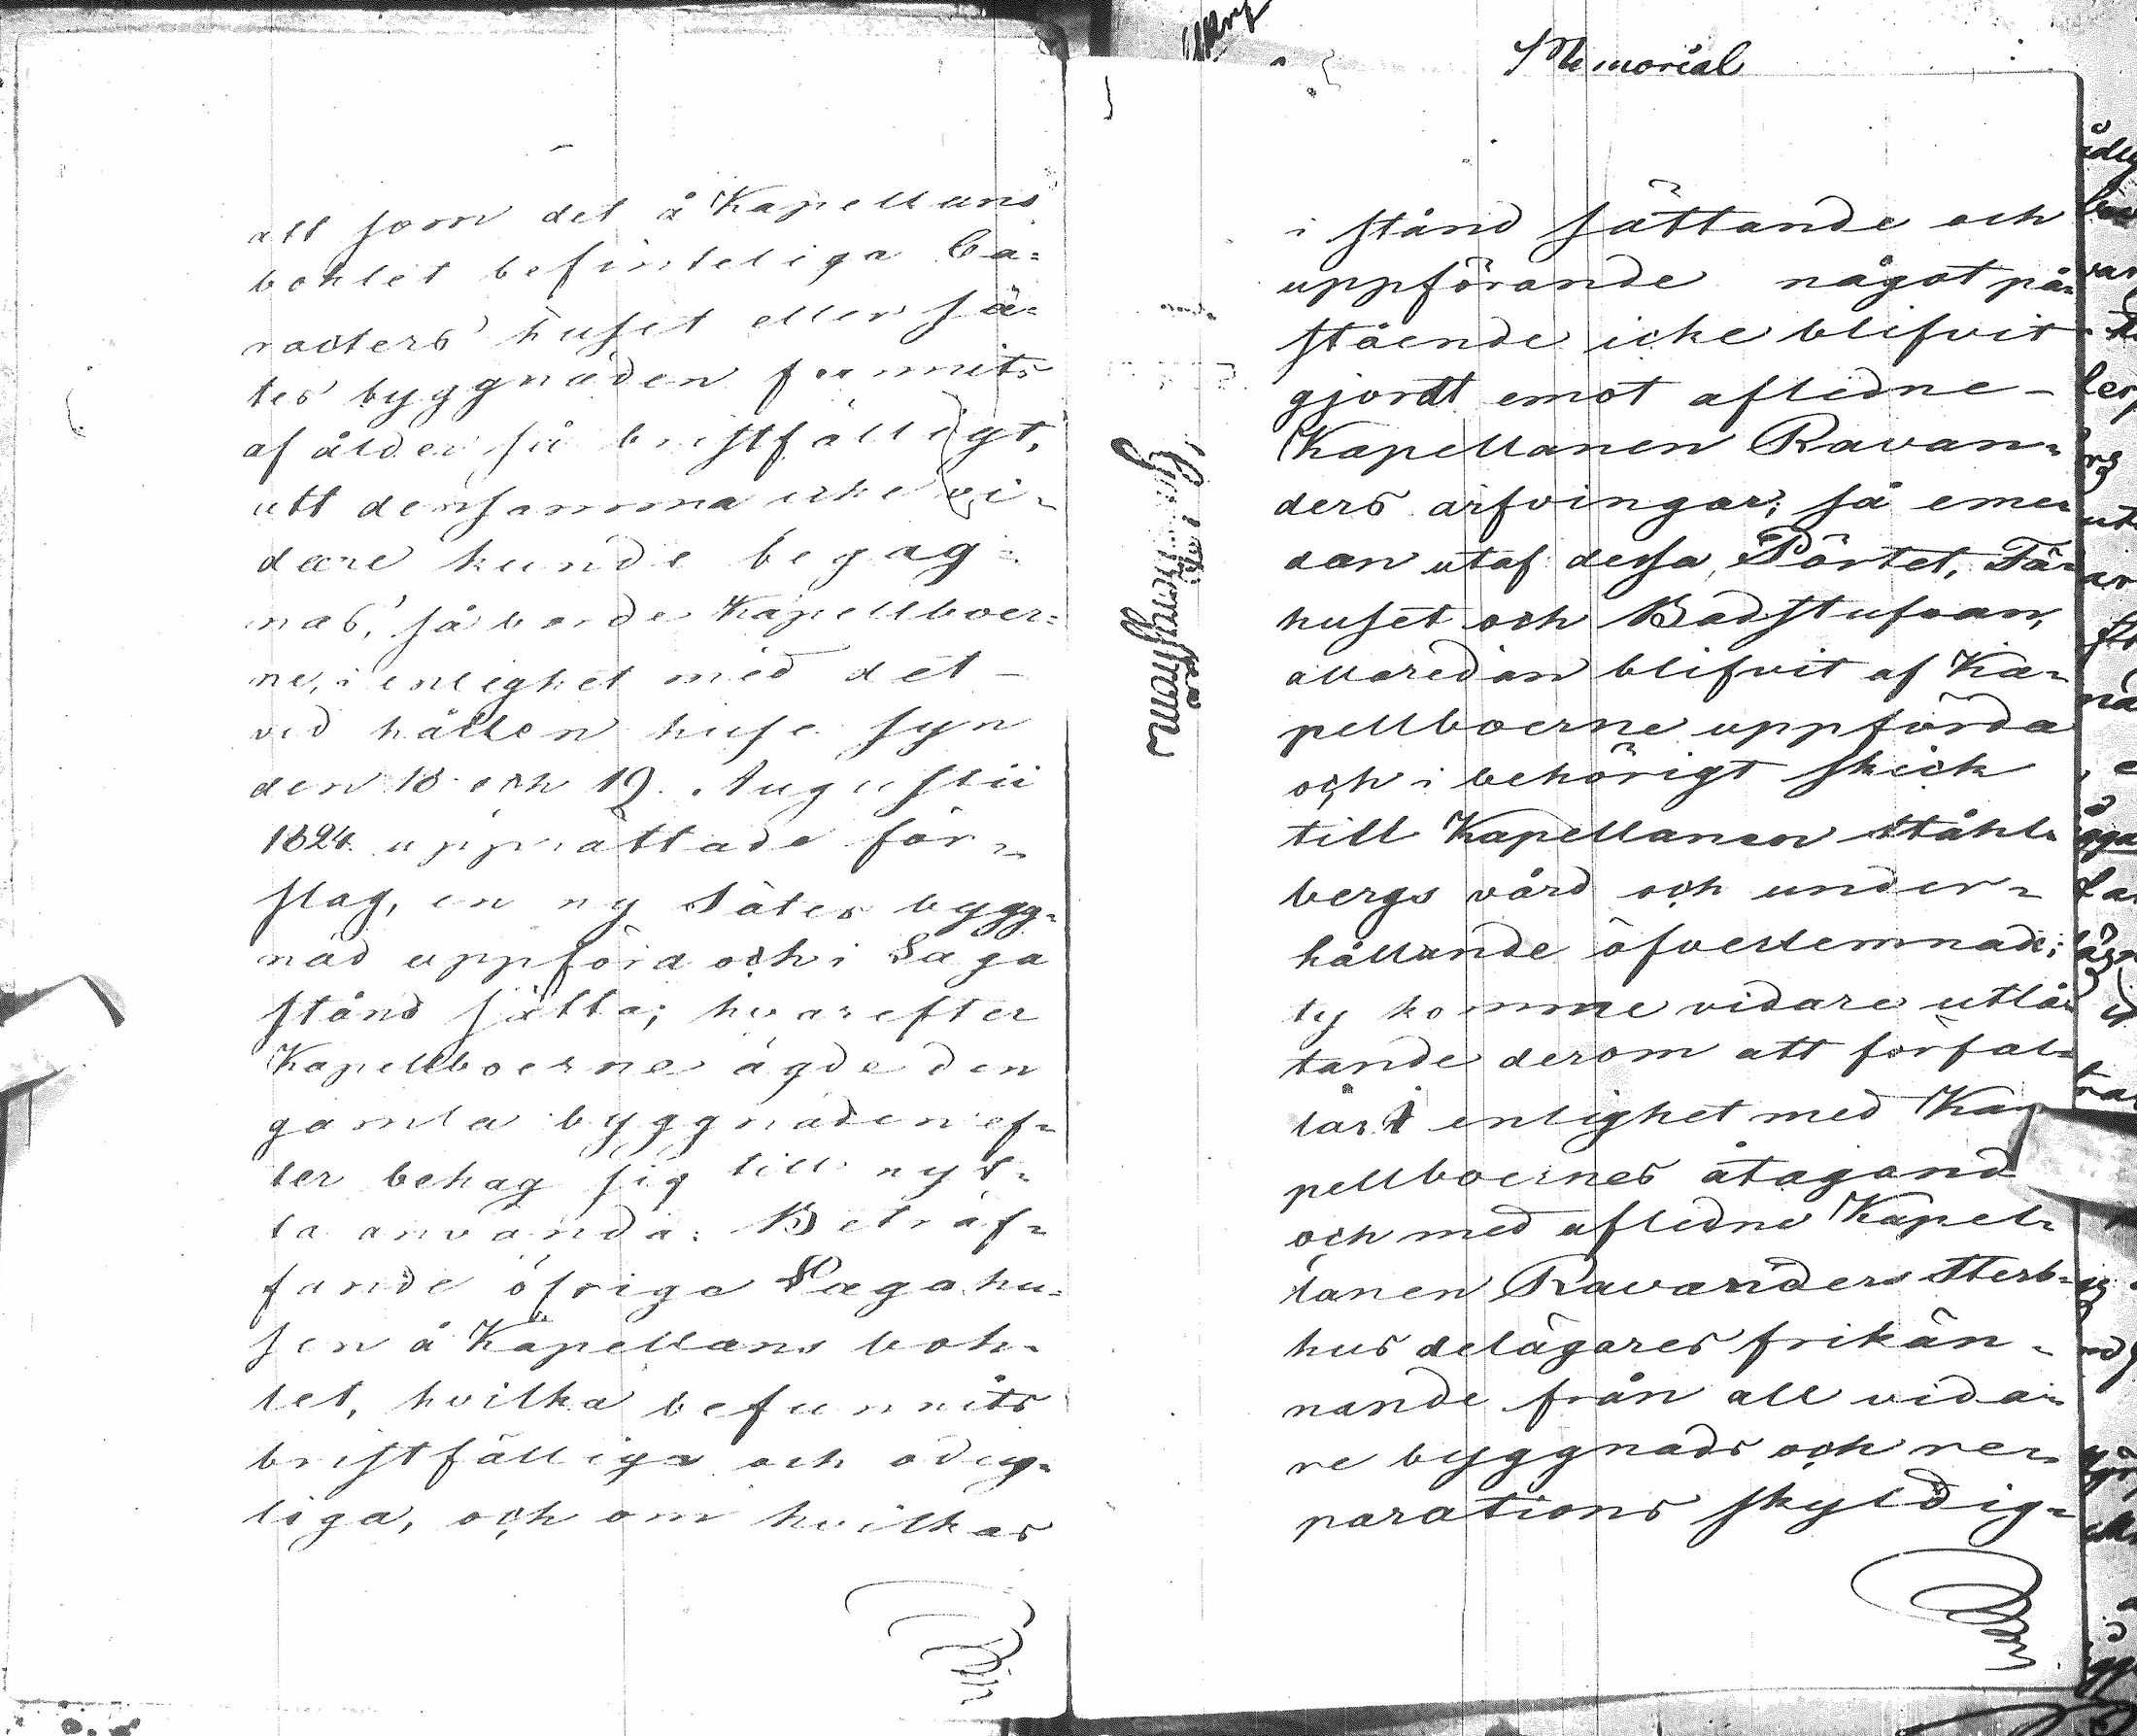 att som det å Kapellans
bohlet befinteliga Ca=
racters huset eller Sä=
tes byggnaden funnits
af ålder så bristfälligt,
att densamma icke vi=
dare kunde begag=
nas, så borde Kapellboer=
ne, i enlighet med det
vid hållen huse syn
den 18 och 19 Augustii
1824 upprättade för=
slag, en ny Sätes bygg=
nad uppföra och i Laga
stånd sätta; hvarefter
Kapellboerne ägde den
gamla byggnaden ef=
ter behag sig till nyt=
ta använda: Beträf=
fande öfriga Laga hu=
sen å Kapellans boh=
let, hvilka befunnits
bristfälliga och odug=
liga, och om hvilkas
Memorial
i stånd sättande och
uppförande något på=
stående icke blifvit
gjordt emot aflidne
Kapellanen Ravan=
ders arfvingar; så eme=
dan utaf dessa, Pörtet, Fä=
huset och Badstufvan,
allaredan blifvit af Ka=
pellboerne uppförda
och i behörigt skick
till Kapellanen Ståhl=
bergs vård och under=
hållande öfverlemnade;
ty komme vidare utlå=
tande derom att förfal=
la; i enlighet med Ka
pellboernes åtagand
och med aflidne Kapel=
lanen Ravanders Sterb=
hus delägares frikän=
nande från all vida=
re byggnads och re=
parations skyldig=